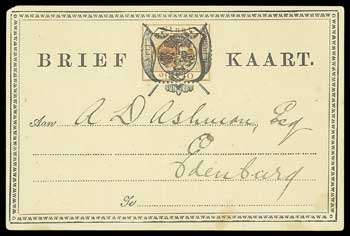 BRIEF KAART.
Aan A D Ashman, Esq
Edenburg
Te